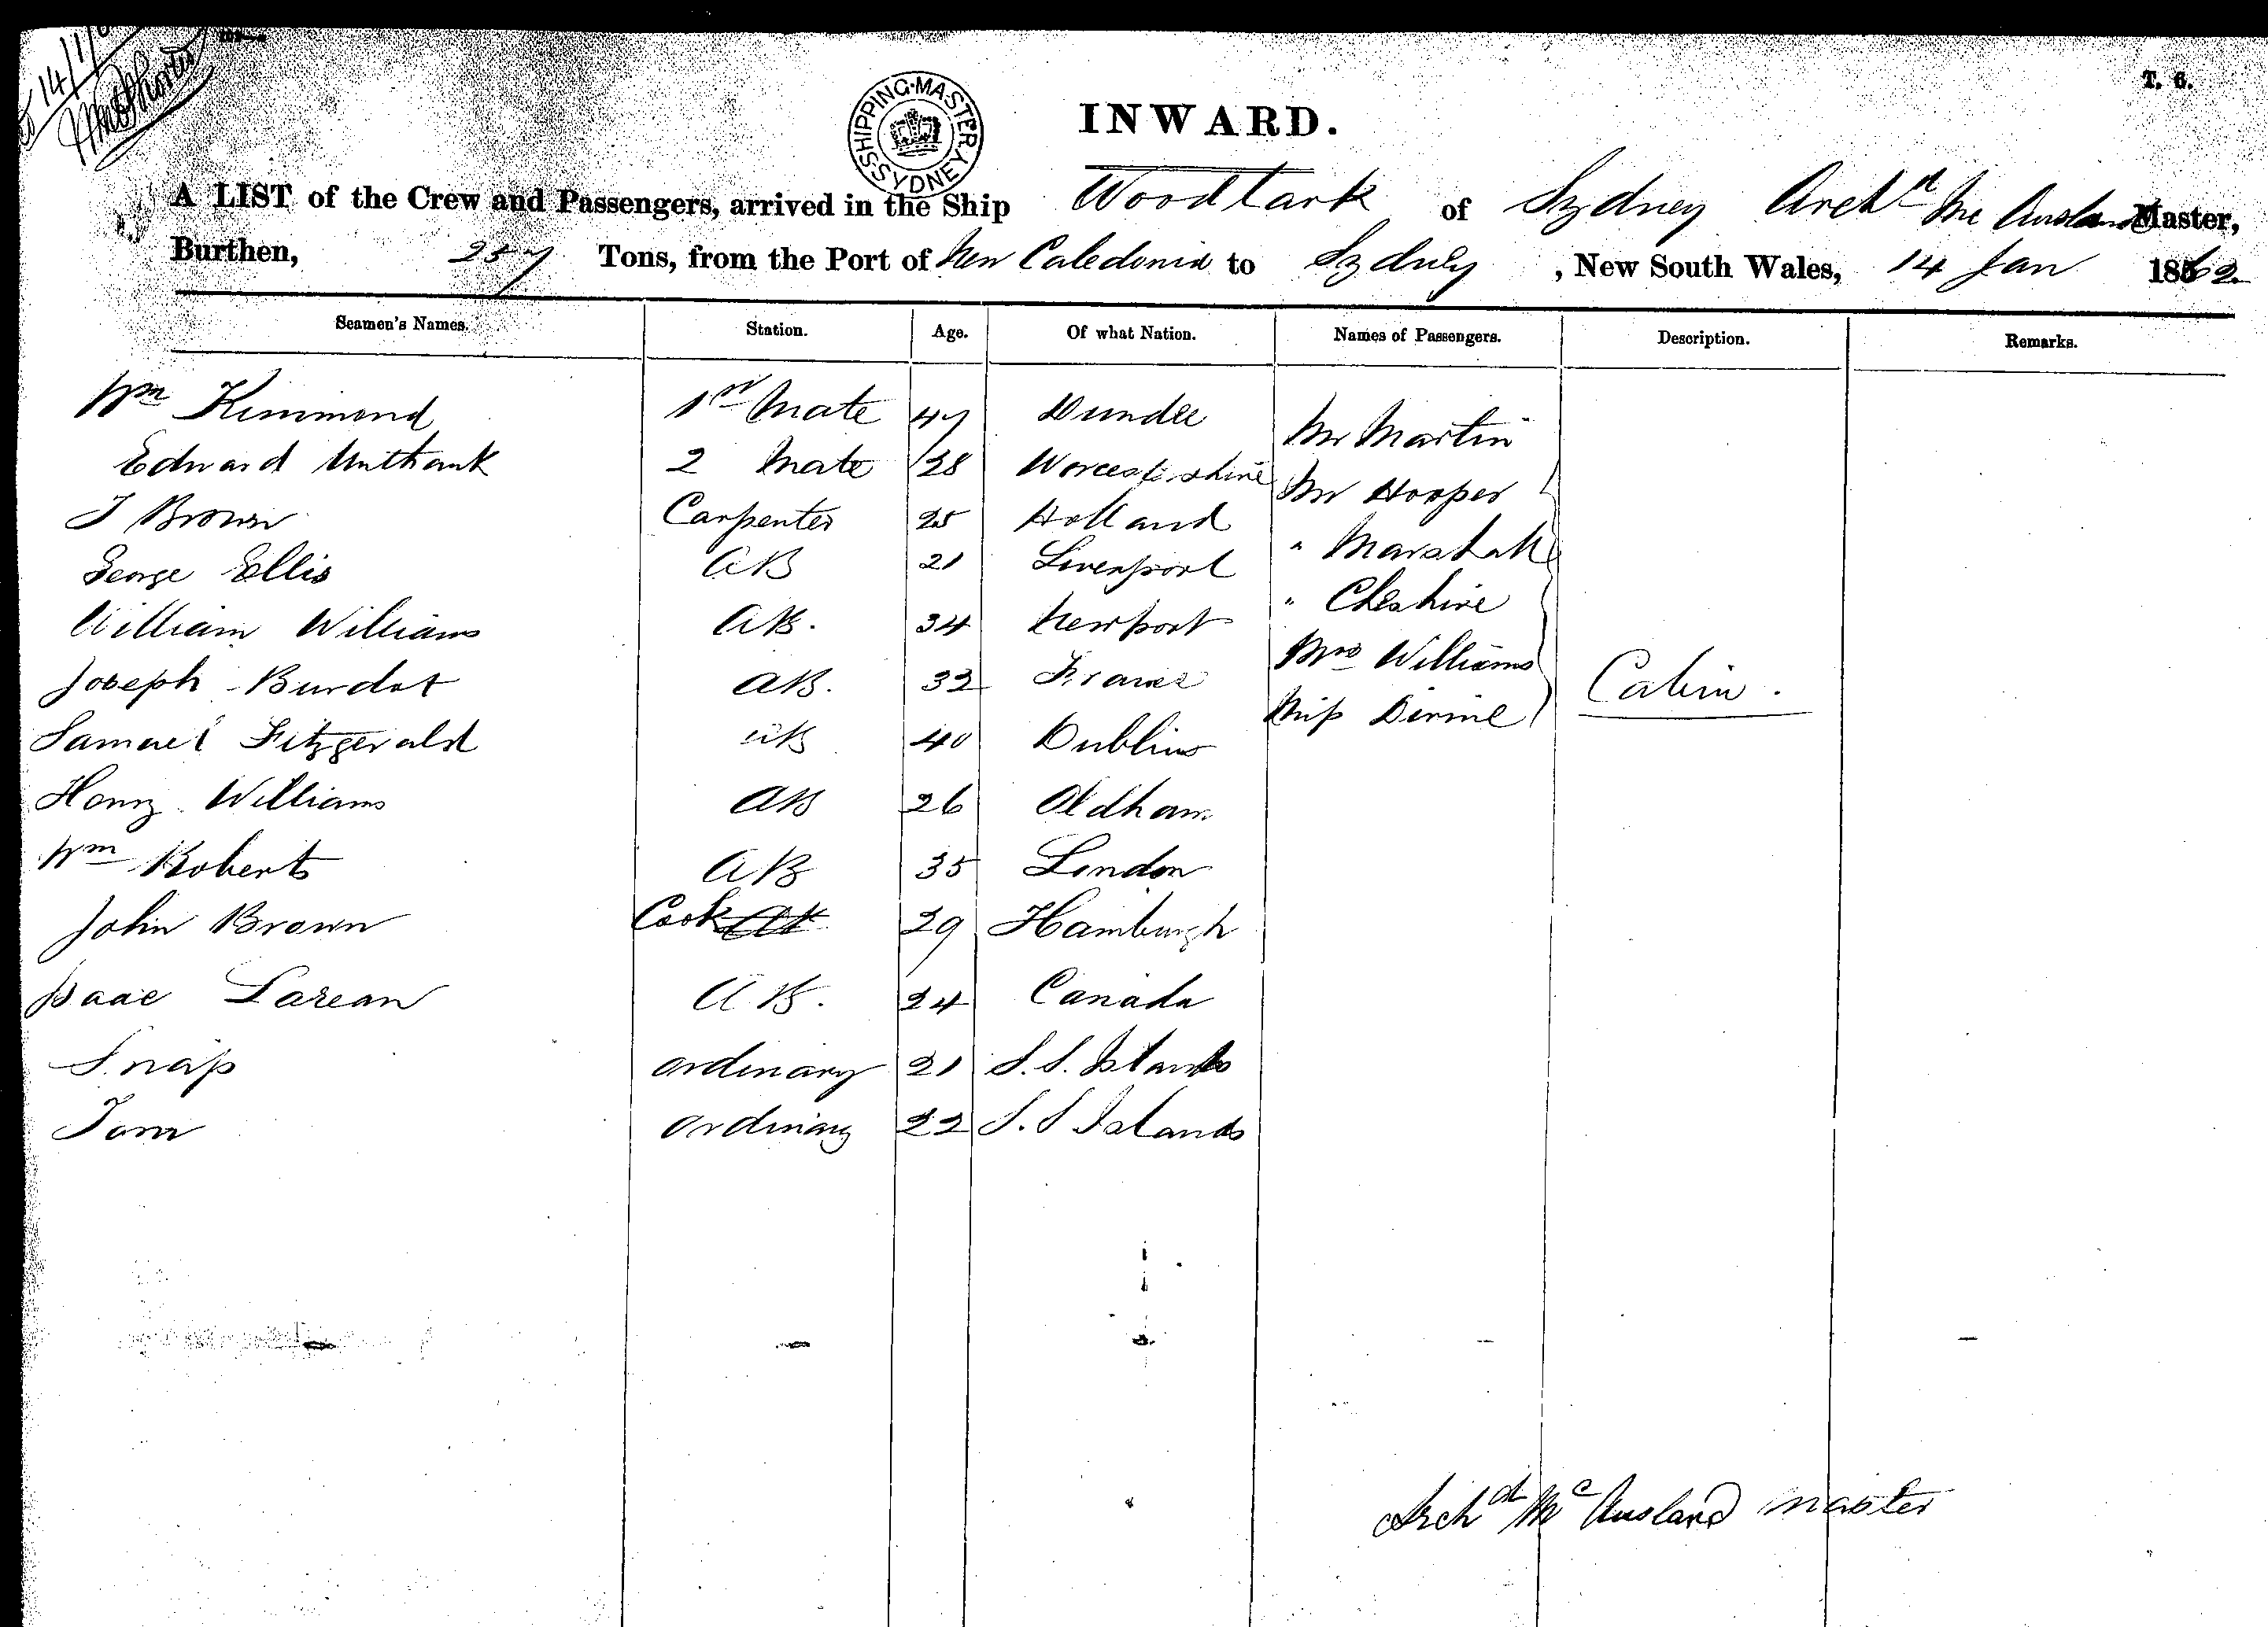 14/1/6
T. 6.
SHIPPING MASTER SYDNEY
INWARD.
A LIST of the Crew and Passengers, arrived in the Ship Woodlark of Sydney Archd Mc Ausland Master,
Burthen, 257 Tons, from the Port of New Caledonia to Sydney, New South Wales, 14 Jan 1862
Seamen's Names. Station. Age. Of what Nation. Names of Passengers. Description. Remarks.
Wm Kinmond 1st Mate 47 Dundee Mr Martin
Edward Unthank 2 Mate 28 Worcestershire Mr Hooper
J Brown Carpenter 25 Holland " Marshall
George Ellis AB 21 Liverpool " Cheshire
William Williams AB. 34 Newport Mrs Williams
Joseph Burdot AB. 32 France Miss Divine Cabin.
Samuel Fitzgerald AB 40 Dublin
Henry Williams AB 26 Oldham
Wm Roberts AB 35 London
John Brown Cook AB 29 Hamburgh
Isaac Larean A.B. 24 Canada
Snap ordinary 21 S.S. Islands
Tom ordinary 22 S.S Islands
Archd Mc Ausland master